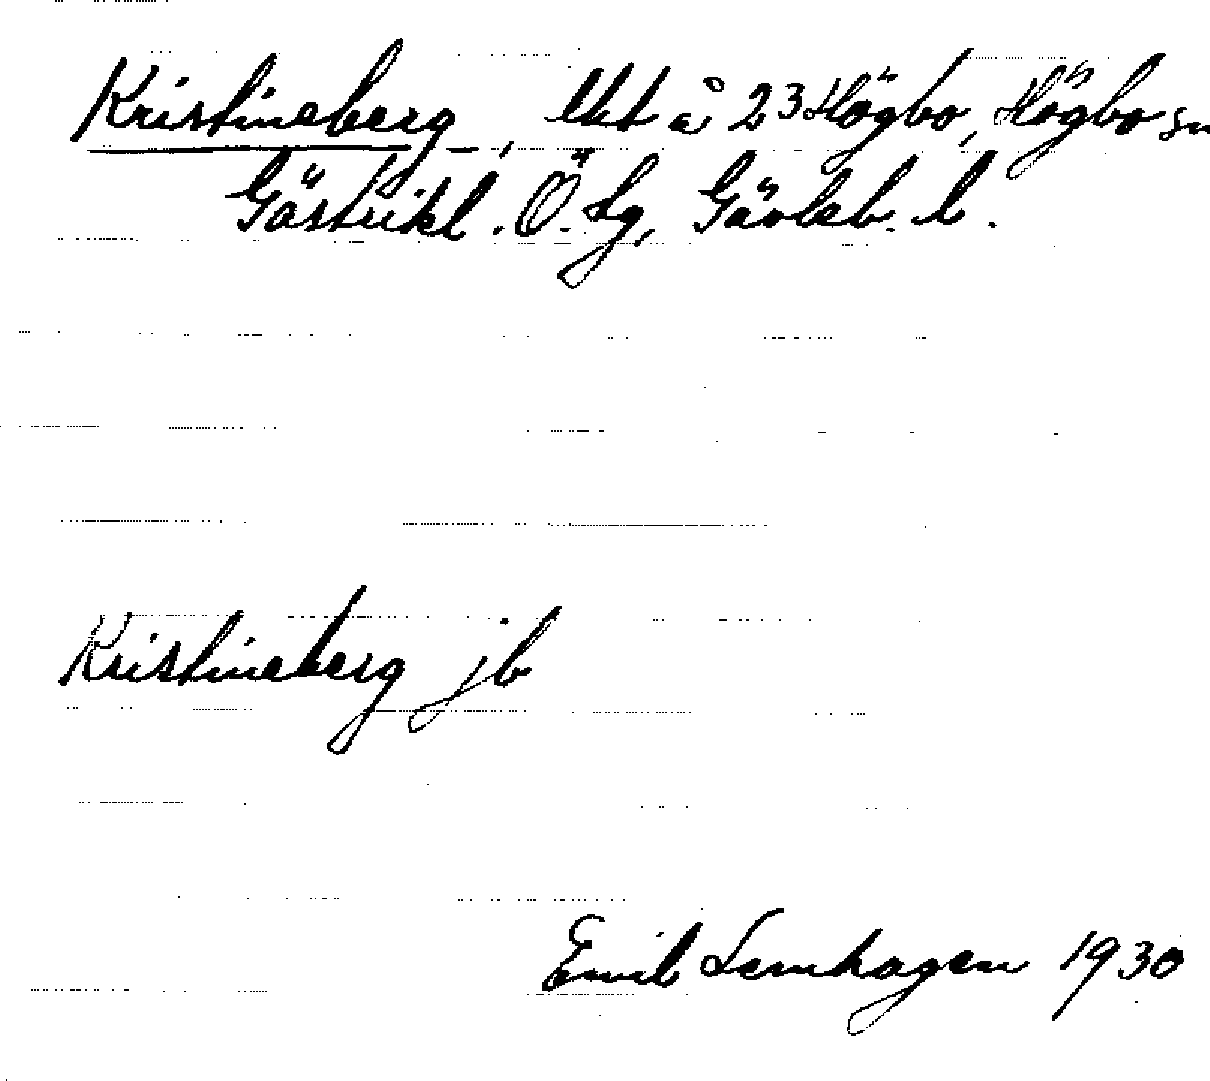 Kristineberg, lht å 23 Högbo, Högbo sn
Gästrikl. Ö. tg, Gävleb. l.
Kristineberg jb
Emil Lernhagen 1930